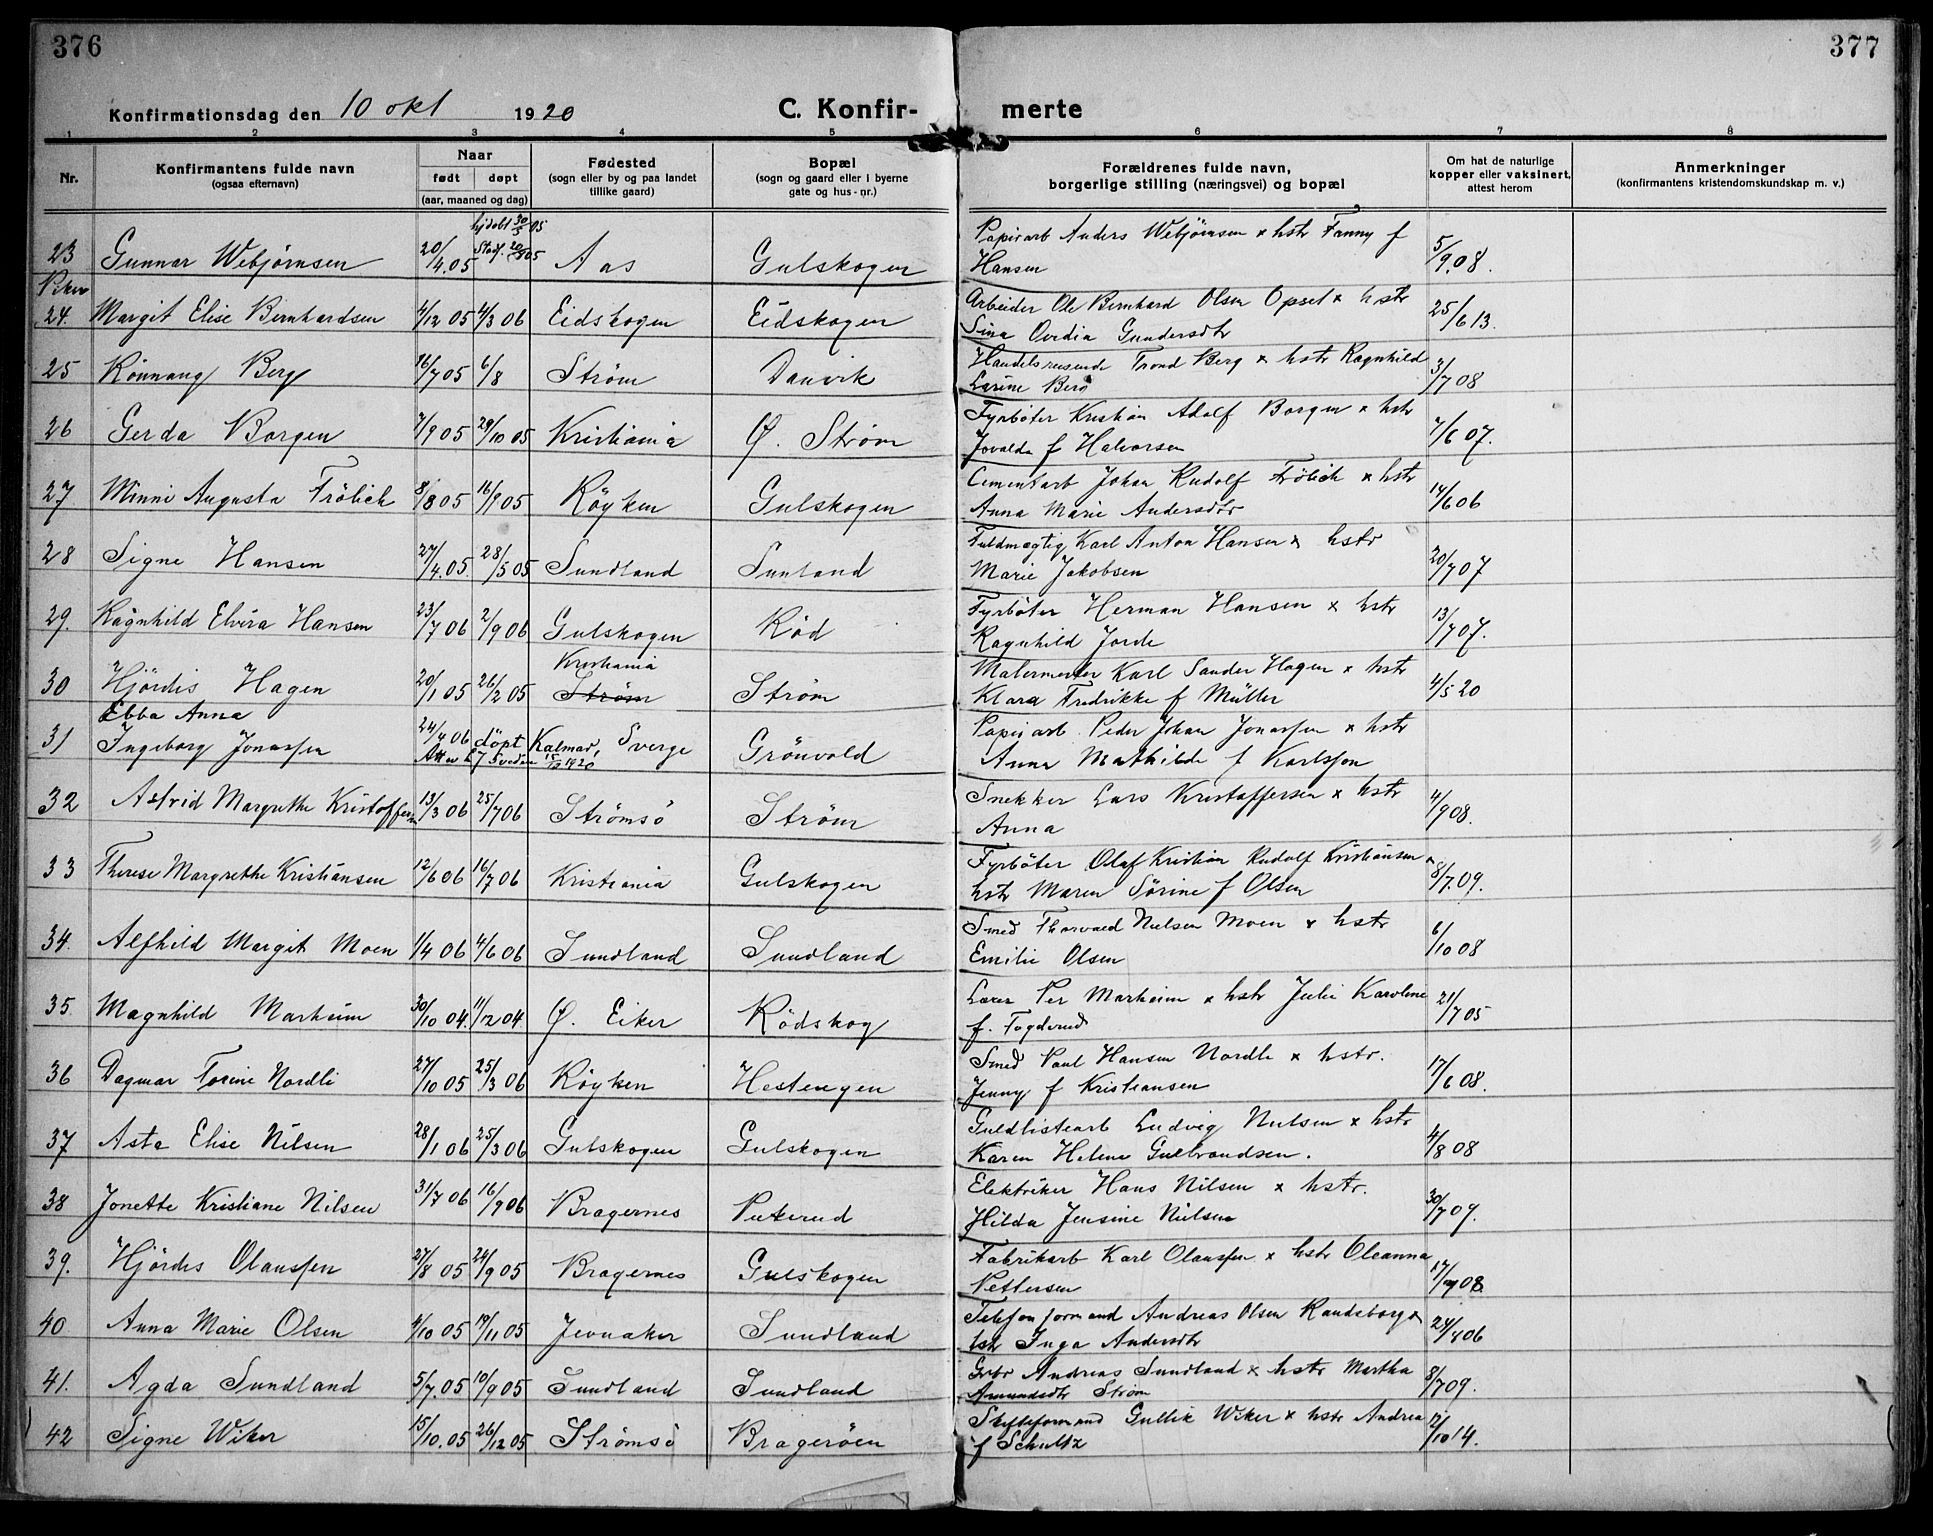 376
377
Konfirmationsdag den 10 okt 1920
C. Konfir-
merte
1 2 3 4 5 6 7 8
Nr.
Konfirmantens fulde navn
(ogsaa efternavn)
Naar
født døpt
(aar, maaned og dag)
Fødested
(sogn eller by og paa landet
tillike gaard)
Bopæl
(sogn og gaard eller i byerne
gate og hus-nr.)
Forældrenes fulde navn,
borgerlige stilling (næringsvei) og bopæl
Om hat de naturlige
kopper eller vaksinert,
attest herom
Anmerkninger
(konfirmantens kristendomskundskap m. v.)
hjdøbt 30/5 05
23 Gunnar Webjørnsen 20/4.05 Stadf. 05 Aas Gulskogen Papirarb Anders Webjörnsen x hstr Fanny f 5/9.08.
Hansen
Piker
24. Margit Elise Bernhardsen 4/12 05 4/3 06 Eidskogen Eidskogen Arbeider Ole Bernhard Olsen Opset x hstr 25/6 13.
Lina Ovidia Gundersdtr
25 Rönnaug Berg 16/7 05 6/8 Strøm Danvik Handelsreisende Trond Berg x hstr Ragnhild 3/7 08
Larine Berg
26 Gerda Borgen 7/9 05 29/10 05 Kristiania Ø. Strøm Fyrböter Kristian Adolf Borgen x hstr 7/6 07.
Jovalda f Halvorsen
27 Minni Augusta Frölich 8/8 05 16/9 05 Röyken Gulskogen Cementarb Johan Rudolf Frölich x hstr 14/6 06
Anna Marie Andersdtr
28 Signe Hansen 27/4.05. 28/5 05 Sundland Sunland Fuldmægtig Karl Anton Hansen x hstr 20/7 07
Marie Jakobsen
29. Ragnhild Elvira Hansen 23/7 06 2/9 06 Gulskogen Röd Fyrböter Herman Hansen x hstr 13/7 07.
Ragnhild Jorde
Kristiania
30 Hjördis Hagen 20/1 05 26/2 05 Strøm Strøm Malermester Karl Sander Hagen x hstr 4/5 20
Klara Fredrikke f Müller
Ebba Anna
31 Ingeborg Jonassen 24/4 06 döpt Kalmar, Sverge Grönvold Papirarb Peder Johan Jonassen x hstr
1920
Anna Mathilde f Karlsson
32 Astrid Margrethe Kristoffersen 13/3 06 25/7 06 Strømsö Strøm Snekker Lars Kristoffersen x hstr 4/9 08.
Anna
33 Therese Margrethe Kristiansen 12/6 06 16/7 06 Kristiania Gulskogen Fyrböter Olaf Kristian Rudolf Kristiansen x 8/7.09.
hstr Maren Sörine f Olsen
34. Alfhild Margit Moen 1/4 06 4/6 06 Sundland Sundland Smed Thorvald Nielsen Moen x hstr 6/10 08
Emilie Olsen
35 Magnhild Marheim 30/10 04. 11/12 04 Ø. Eiker Rödskog Lærer Per Marheim x hstr Julie Karoline 21/7 05
f. Fogderud
36 Dagmar Torine Nordli 27/10 05 25/3 06 Röyken Hestengen Smed Paul Hansen Nordli x hstr. 17/6 08.
Jenny f Kristiansen
37 Asta Elise Nilsen 28/1 06 25/3 06 Gulskogen Gulskogen Guldlistearb Ludvig Nielsen x hstr 4/8 08
Karen Helene Gulbrandsen.
38 Jonette Kristiane Nilsen 31/7 06 16/9 06 Bragernes Puterud Elektriker Hans Nilsen x hstr. 30/7 07.
Hilda Jensine Nielsen
39. Hjördis Olaussen 27/8 05 24/9 05 Bragernes Gulskogen Fabrikarb Karl Olaussen x hstr Oleanna 17/7 08
Pettersen
40 Anna Marie Olsen 4/10 05 19/11 05 Jevnaker Sundland Telefonformand Andreas Olsen Randsborg x 24/8 06
hstr Inga Andersdtr
41. Agda Sundland 5/7.05 10/9 05 Sundland Sundland Grbr Andreas Sundland x hstr Martha 8/7 09.
Amundsdtr Strøm
42 Signe Wiker 15/10.05 26/12 05 Strømsö Brageröen Skifteformand Gullik Wiker x hstr Andrea 12/10 14.
f Schultz